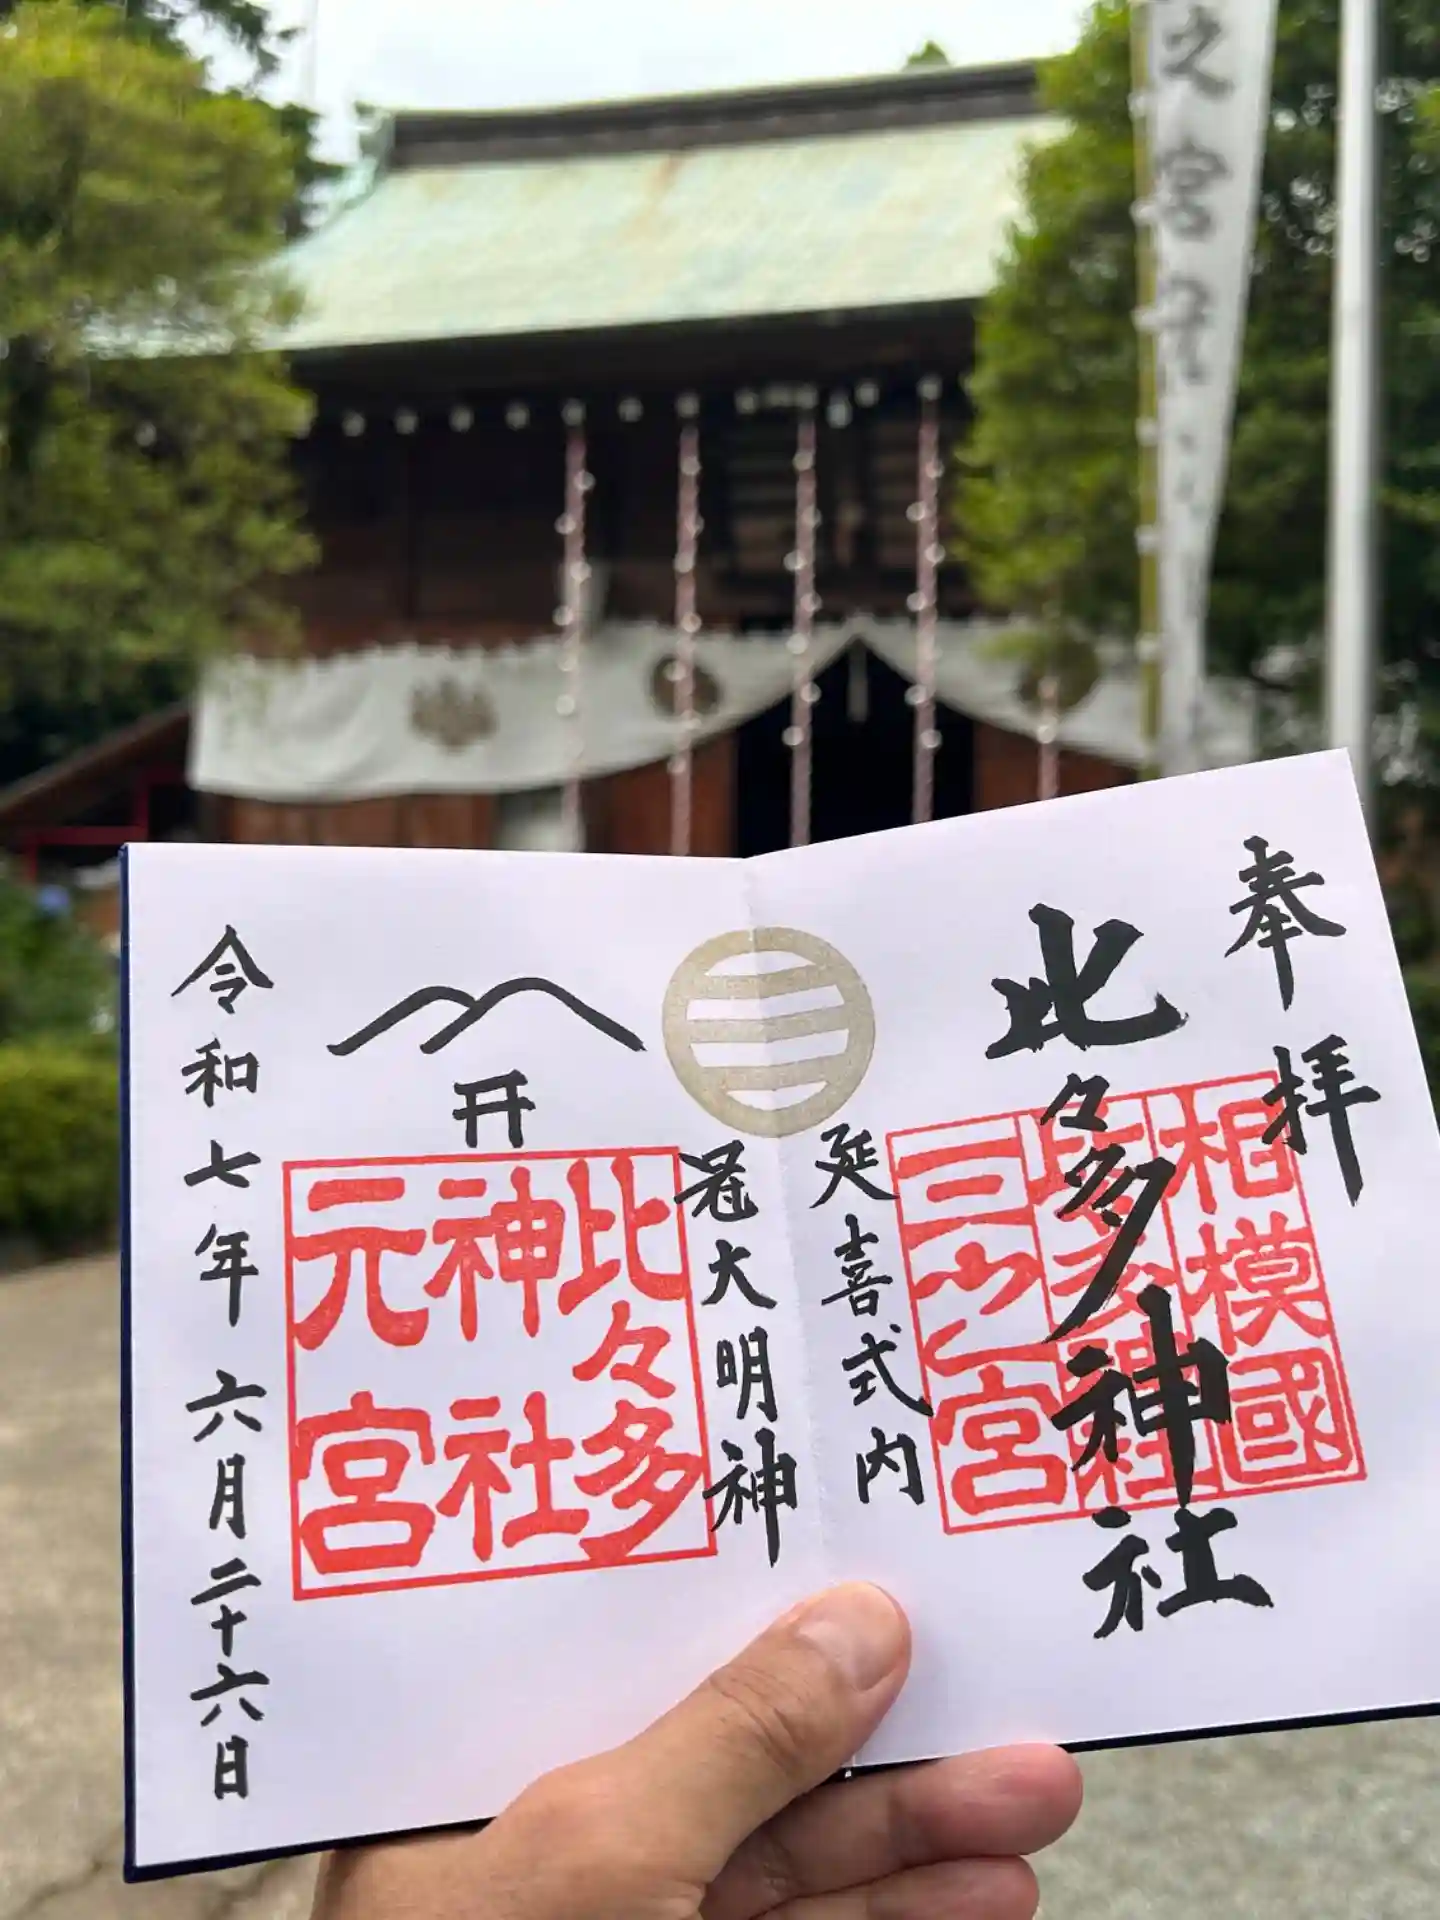 之宮
奉拝
相模國
比々多神社
三之宮
比々多神社
延喜式内
冠大明神
比々多
神社
元宮
令和七年六月二十六日